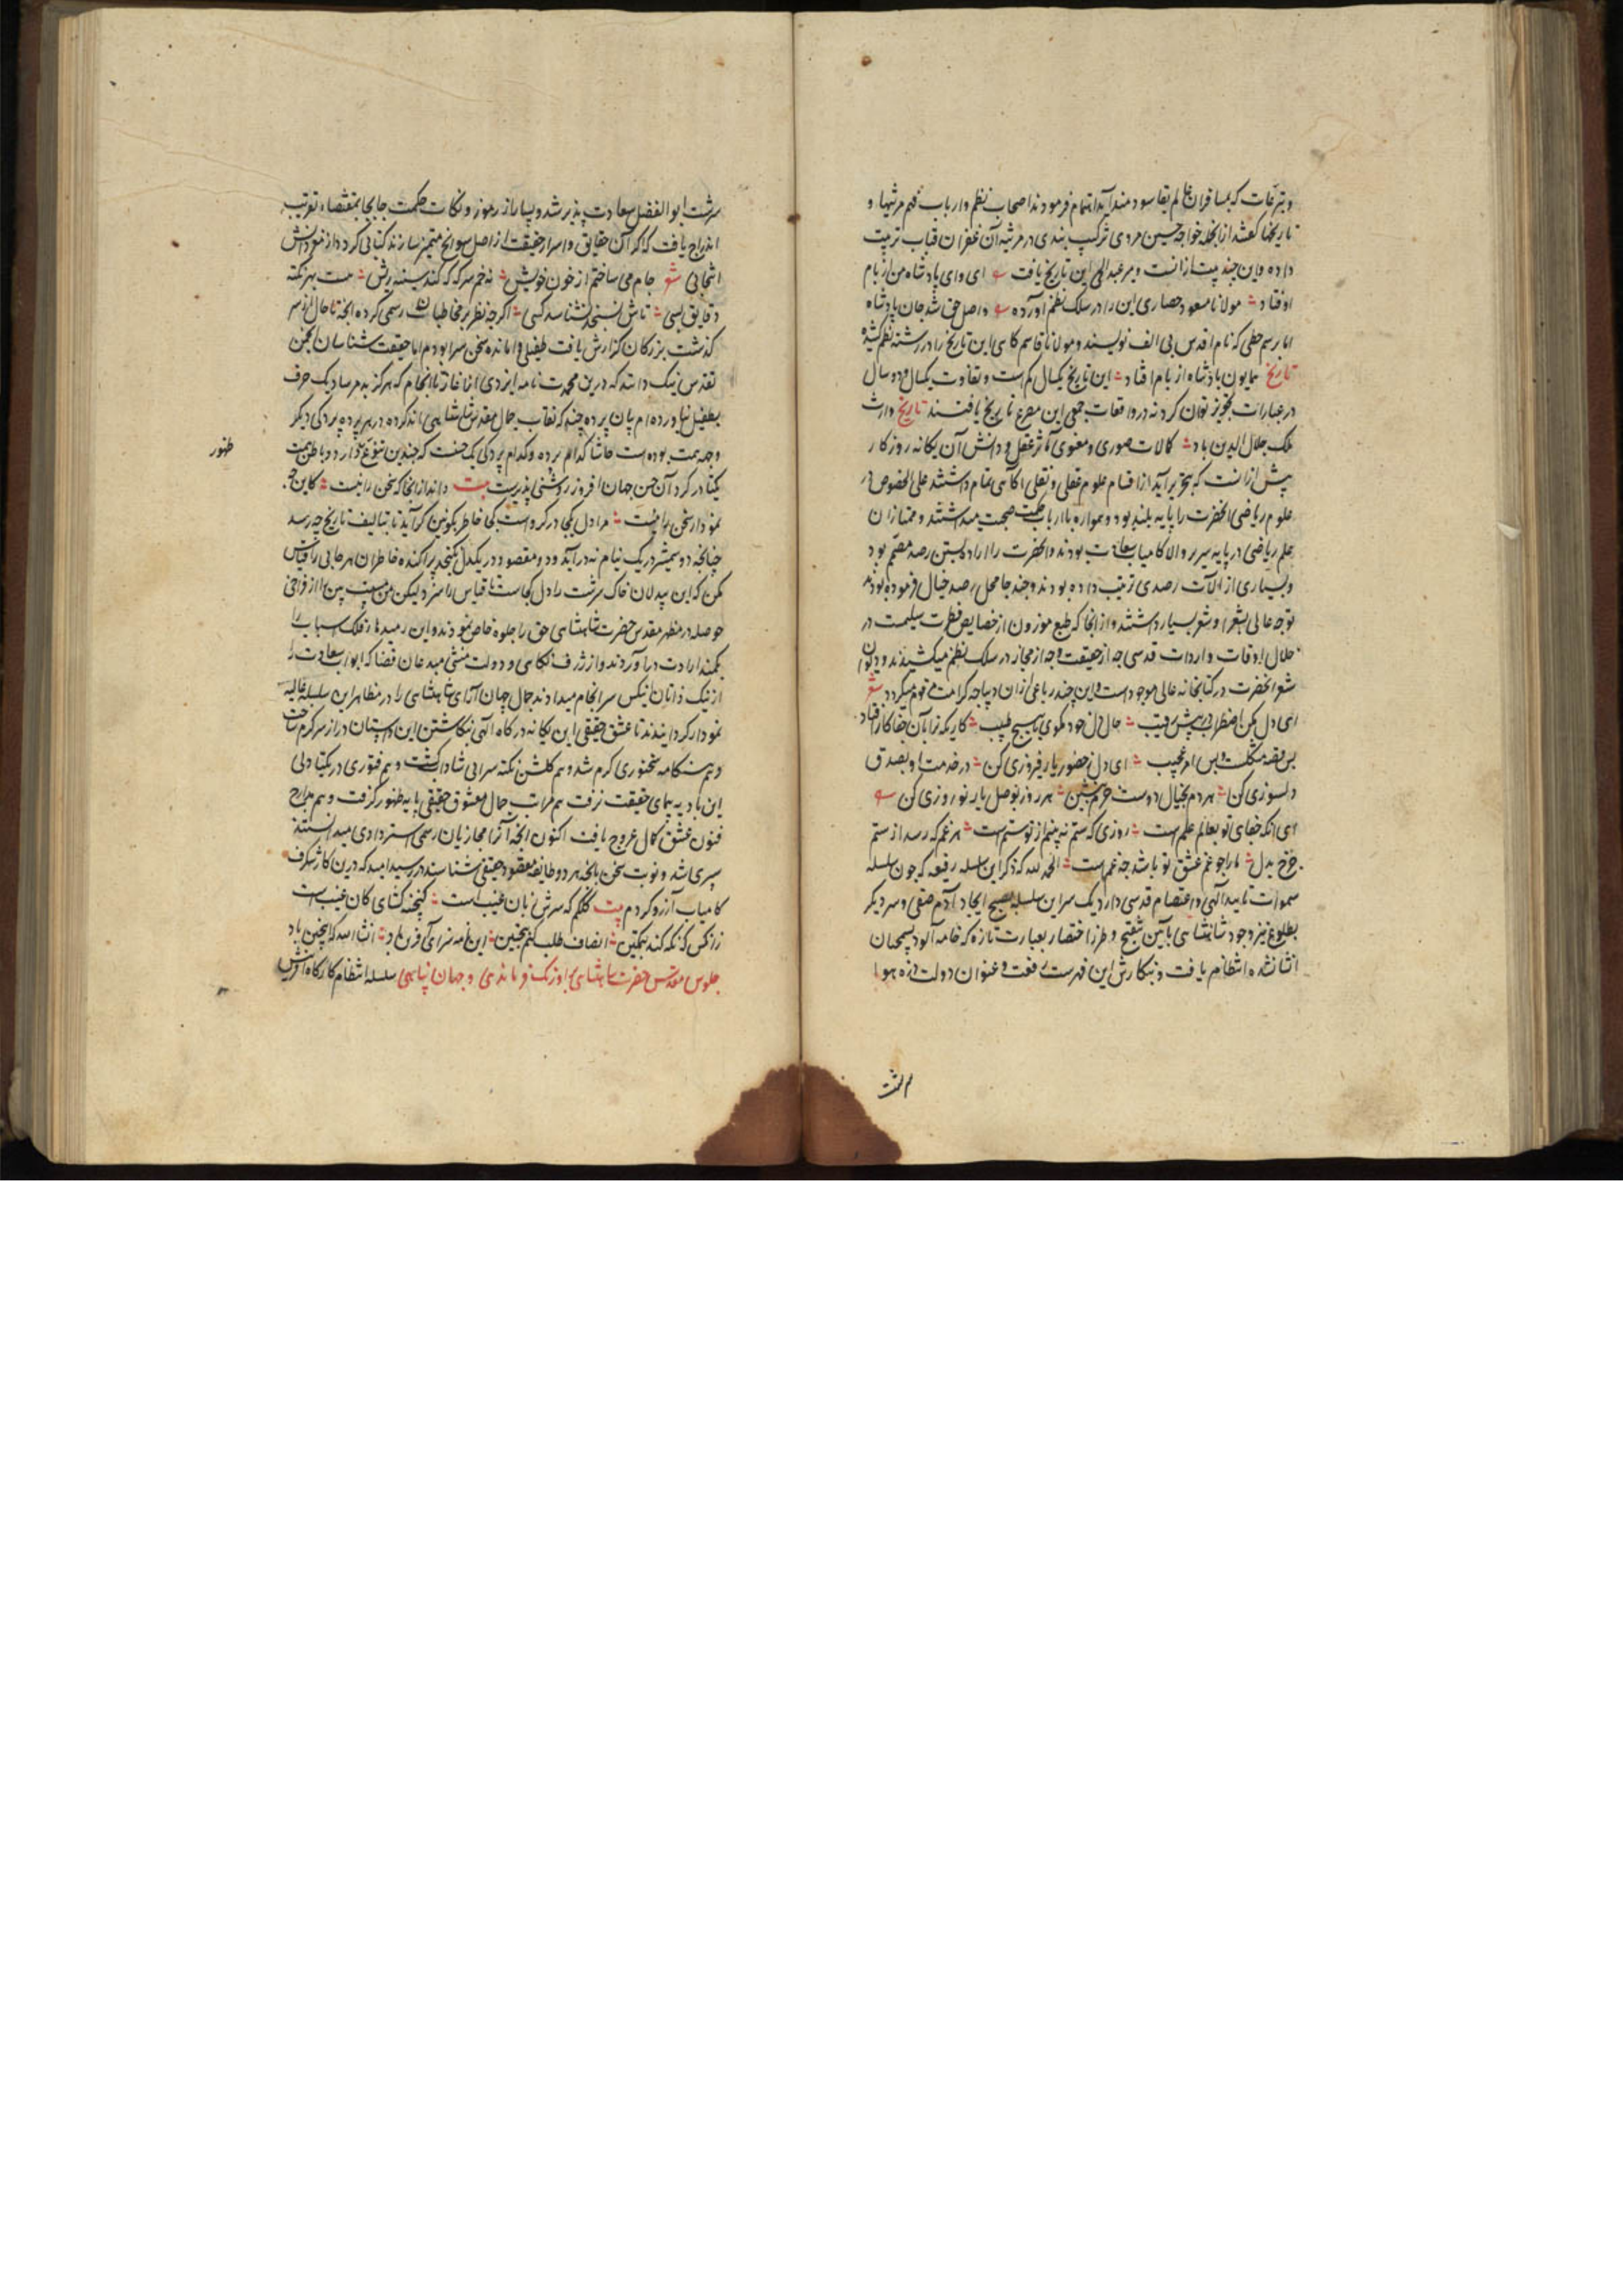 و تبرعات که بمسافران عالم بقا سودمند آید اهتمام فرمودند اصحاب نظم و ارباب فهم مرثیها و
تاریخها گفتند ازانجمله خواجه حسین مروی ترکیب بندی در مرثیه آن غفران قباب ترتیب
داده و این چند بیت ازانست و میر عبدالحی این تاریخ یافت ای وای پادشاه من از بام
اوفتاد مولانا مسعود حصاری این را در سلک نظم آورده واصل حق شد جان پادشاه
اما برسم خطی که نام اقدس بی الف نویسند و مولانا قاسم کاهی این تاریخ را در رشته نظم کشیده
تاریخ همایون پادشاه از بام افتاد این تاریخ یکسال کم است و تفاوت یکسال و دو سال
در عبارات تجویز توان کرد نه در واقعات جمعی این مصرع تاریخ یافتند تاریخ وارث
ملک جلال الدین باد کمالات صوری و معنوی مآثر عقل و دانش آن یگانه روزگار
پیش ازانست که بتحریر آید از اقسام علوم عقلی و نقلی آگاهی تمام داشتند علی الخصوص در
علوم ریاضی آنحضرت را پایه بلند بود و همواره با ارباب حکمت صحبت میداشتند و ممتازان
علم ریاضی در پایه سریر والا کامیاب سعادت بودند و آنحضرت را اراده بستن رصد مصمم بود
و بسیاری از آلات رصدی ترتیب داده بودند و چند جا محل رصد خیال فرموده بودند
توجه عالی بشعر و شعرا بسیار داشتند و ازانجا که طبع موزون از خصایص فطرت سلیمست در
خلال اوقات واردات قدسی چه از حقیقت و چه از مجاز در سلک نظم میکشیدند و دیوان
شعر آنحضرت در کتابخانه عالی موجود است و این چند رباعی ازان دیباچه کرامت مرقوم میگردد شعر
ای دل مکن اضطراب در پیش رقیب حال دل خود مگوی با هیچ طبیب کاریکه ترا بآن جفاکار افتاد
بس قصه مشکلست و بس امر عجیب ای دل ز حضور یار فیروزی کن در خدمت او بصدق
دلسوزی کن هر دم بخیال دوست خرم بنشین هر روز بوصل یار نوروزی کن
ای آنکه جفای تو بعالم علم است روزی که ستم نه بینم از تو ستم است هر غم که رسد از ستم
چرخ بدل ما را چو غم عشق تو باشد چه غم است الحمد لله که ذکر این سلسله رفیعه که چون سلسله
سموات تایید الهی و اعتصام قدسی دارد یک سر این سلسله بصبح ایجاد آدم صفی و سر دیگر
بطلوع نیر وجود شاهنشاهی بآیین تنقیح و طرز اختصار بعبارت تازه که خامه آلود پسیجان
انشا نشده انتظام یافت و بنگارش این فهرست رفعت و عنوان دولت ذره هوا
سرشت ابوالفضل سعادت پذیر شد و بسیار از رموز و نکات حکمت جابجا بمقتضاء تقریب
اندراج یافت که اگر آن حقایق و اسرار حقیقت از اصل سوانح متمیز سازند کتابی گردد از مغز دانش
انتخابی شعر جام می ساختم از خون خویش نه خم سرکه که کند سینه ریش هست بهر نکته
دقایق بسی تاش نسنجد نشناسد کسی اگرچه نظر بر مخاطبات رسمی کرده آنچه تا حال از سر
گذشت بزرگان گزارش یافت طفیلی وامانده سخن سرا بودم اما حقیقت شناسان انجمن
تقدس نیک دانند که درین محمدت نامه ایزدی از آغاز تا انجام که هرگز بدم سازد یک حرف
بطفیل نیاورده ام بیان پرده چند که نقاب جمال مقدس شاهنشاهی اند کرده در هر پرده پردگی دیگر
وجهه همت بوده است حاشا کدام پرده و کدام پردگی یک حسنت که چندین تنوع
یکتا در گرد آن حسن جهان افروز روشنی پذیرست بیت داند ازانجا که سخن رانیست کاین چه
نمودار سخن دانیست مرا دل یکی در گرو است کی خاطر بکونین گراید تا بتالیف تاریخ چه رسد
چنانچه دو شمشیر در یک نیام نه درآید دو مقصود در یکدل نگنجد پراگنده خاطران هر جایی را قیاس
مکن که این بیدلان خاک سرشت را دل کجاست تا قیاس را سزد لیکن من مست بین را از فراخی
حوصله در مظهر مقدس حضرت شاهنشاهی حق را جلوه خاص نمودند و این رمیده از فلک اسباب را
بکمند ارادت درآوردند و از ژرف نگاهی و دولت منشی مبدعان قضا که ابواب سعادت را
از نیک ذاتان نیکس سرانجام میدادند جمال جهان آرای شاهنشاهی را در مظاهر این سلسله عالیه
نمودار گردانیدند تا عشق حقیقی این یگانه درگاه الهی بنگاشتن این داستان دراز سرگرم ساخت
و هم هنگامه سخنوری گرم شد و هم گلشن نکته سرایی شاداب گشت و هم فتوری در یکتادلی
این بادیه پیمای حقیقت نرفت هم مراتب جمال معشوق حقیقی پایه ظهور گرفت و هم مدارج
فنون عشق کمال عروج یافت اکنون آنچه آنرا مجازیان رسمی استردادی میدانستند
سپری شد و نوبت سخن بآنچه هر دو طایفه مقصود حقیقی شناسند در رسید امید که درین کار شگرف
کامیاب آرزو گردم بیت کلکم که سرش زبان غیب است گنجینه کشای کان غیب است
زانکس که نگه کند بتمکین انصاف طلب کنم نه تحسین این نامه سزای آفرین باد انشاء الله که اینچنین باد
جلوس مقدس حضرت شاهنشاهی بر اورنگ فرماندهی و جهان پناهی سلسله انتظام کارگاه آفرینش
ظهور
سرشت